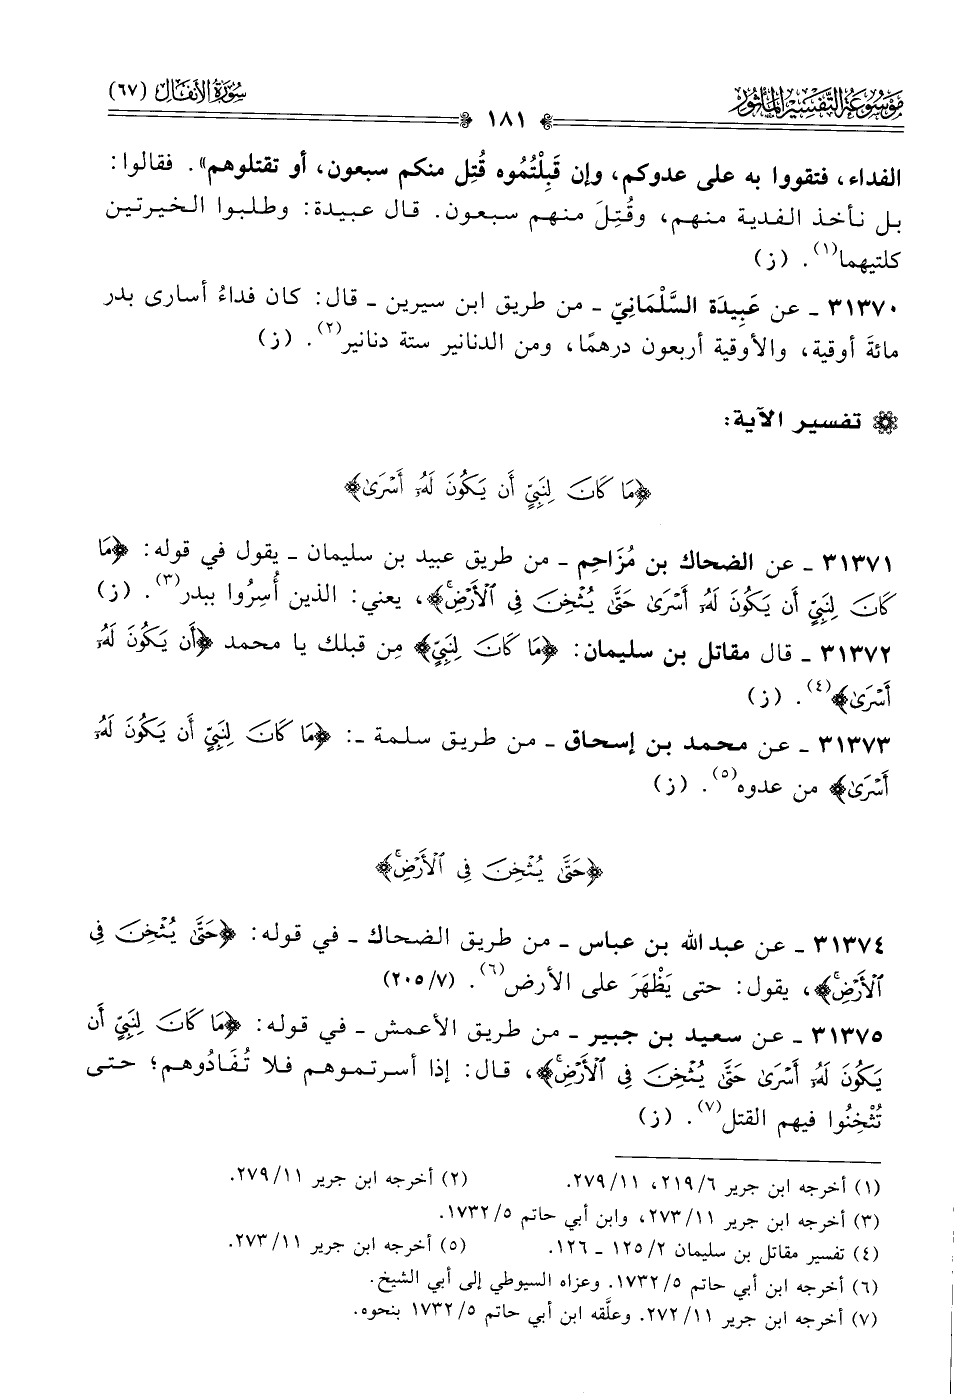 موسوعة التفسير المأثور
١٨١
سورة الأنفال (٦٧)
الفداء، فتقووا به على عدوكم، وإن قَبِلْتُمُوه قُتِل منكم سبعون، أو تقتلوهم». فقالوا:
بل نأخذ الفدية منهم، وقُتِلَ منهم سبعون. قال عبيدة: وطلبوا الخيرتين
كلتيهما(١). (ز)
٣١٣٧٠ ـ عن عَبِيدَة السَّلْمَانِيّ ـ من طريق ابن سيرين ـ قال: كان فداءُ أسارى بدر
مائةَ أوقية، والأوقية أربعون درهمًا، ومن الدنانير ستة دنانير(٢). (ز)
تفسير الآية:
﴿مَا كَانَ لِنَبِيٍّ أَن يَكُونَ لَهُۥ أَسْرَىٰ﴾
٣١٣٧١ ـ عن الضحاك بن مُزَاحِم ـ من طريق عبيد بن سليمان ـ يقول في قوله: ﴿مَا
كَانَ لِنَبِيٍّ أَن يَكُونَ لَهُۥ أَسْرَىٰ حَتَّىٰ يُثْخِنَ فِي ٱلْأَرْضِۚ﴾، يعني: الذين أُسِرُوا ببدر(٣). (ز)
٣١٣٧٢ ـ قال مقاتل بن سليمان: ﴿مَا كَانَ لِنَبِيٍّ﴾ مِن قبلك يا محمد ﴿أَن يَكُونَ لَهُۥ
أَسْرَىٰ﴾(٤). (ز)
٣١٣٧٣ ـ عن محمد بن إسحاق ـ من طريق سلمة ـ: ﴿مَا كَانَ لِنَبِيٍّ أَن يَكُونَ لَهُۥ
أَسْرَىٰ﴾ من عدوه(٥). (ز)
﴿حَتَّىٰ يُثْخِنَ فِي ٱلْأَرْضِۚ﴾
٣١٣٧٤ ـ عن عبد الله بن عباس ـ من طريق الضحاك ـ في قوله: ﴿حَتَّىٰ يُثْخِنَ فِي
ٱلْأَرْضِۚ﴾، يقول: حتى يَظْهَرَ على الأرض(٦). (٧/ ٢٠٥)
٣١٣٧٥ ـ عن سعيد بن جبير ـ من طريق الأعمش ـ في قوله: ﴿مَا كَانَ لِنَبِيٍّ أَن
يَكُونَ لَهُۥ أَسْرَىٰ حَتَّىٰ يُثْخِنَ فِي ٱلْأَرْضِۚ﴾، قال: إذا أسرتموهم فلا تُفَادُوهم؛ حتى
تُثْخِنُوا فيهم القتل(٧). (ز)
(١) أخرجه ابن جرير ٦/ ٢١٩، ١١/ ٢٧٩. (٢) أخرجه ابن جرير ١١/ ٢٧٩.
(٣) أخرجه ابن جرير ١١/ ٢٧٣، وابن أبي حاتم ٥/ ١٧٣٢.
(٤) تفسير مقاتل بن سليمان ٢/ ١٢٥ ـ ١٢٦. (٥) أخرجه ابن جرير ١١/ ٢٧٣.
(٦) أخرجه ابن أبي حاتم ٥/ ١٧٣٢. وعزاه السيوطي إلى أبي الشيخ.
(٧) أخرجه ابن جرير ١١/ ٢٧٢. وعلَّقه ابن أبي حاتم ٥/ ١٧٣٢ بنحوه.